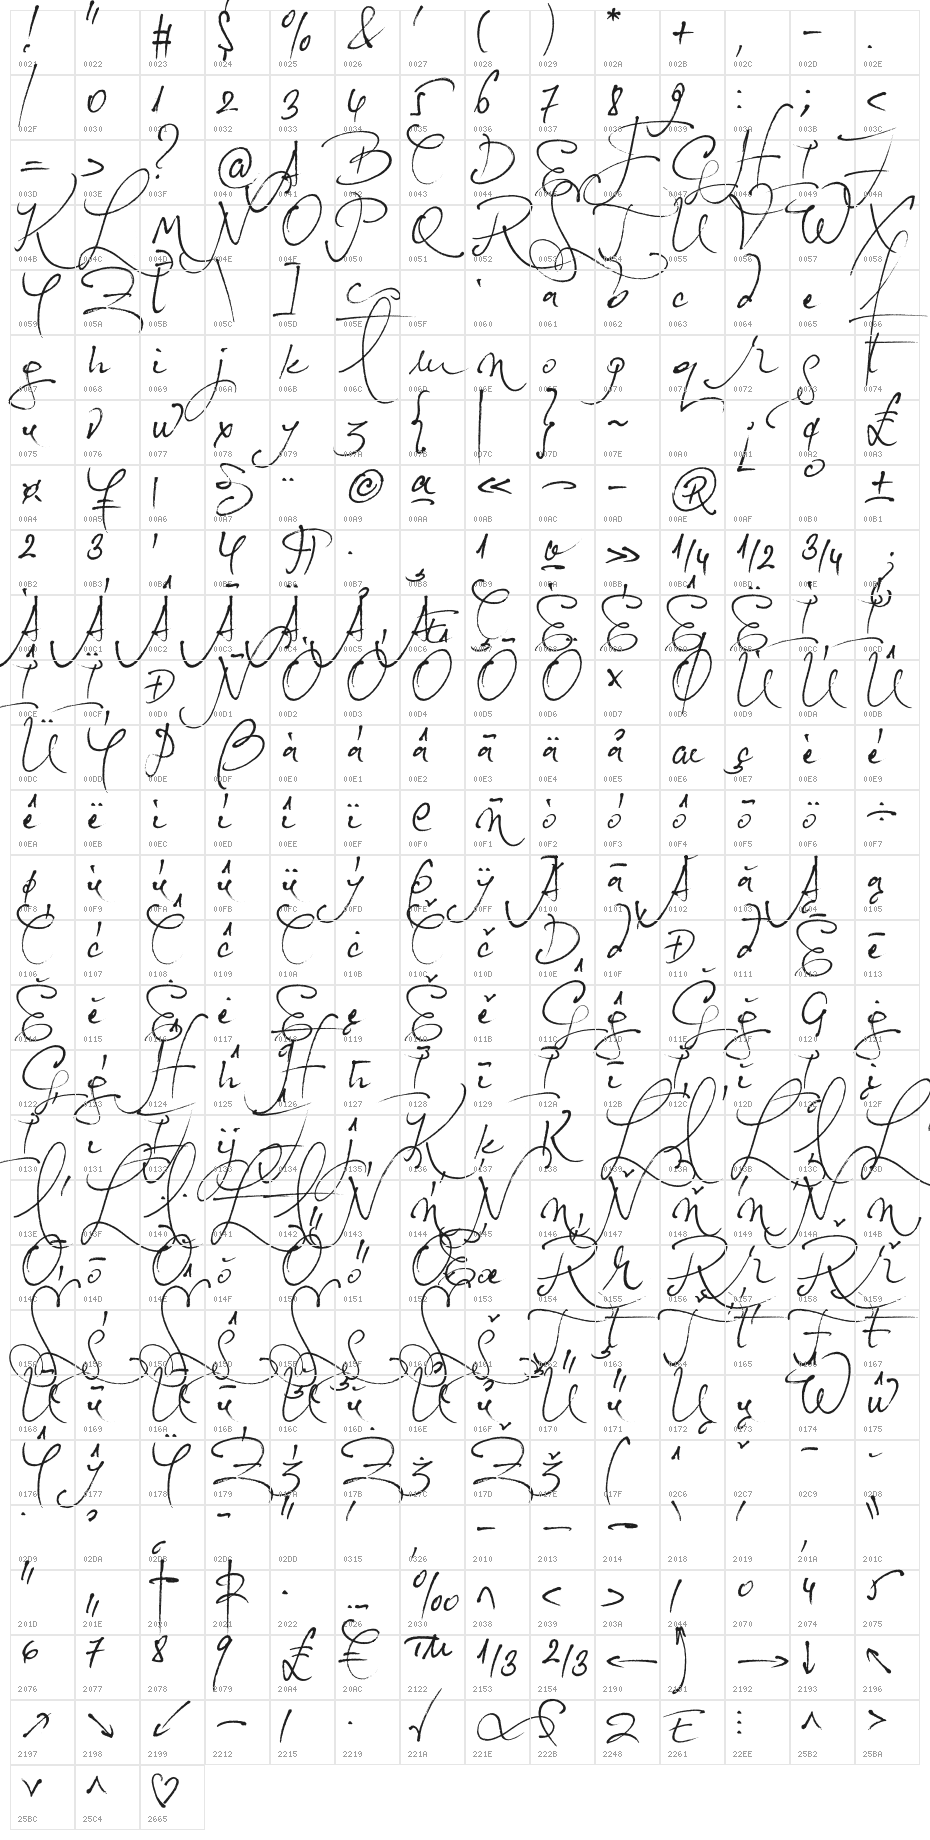 ! " # $ % & ' ( ) * + , - .
0021 0022 0023 0024 0025 0026 0027 0028 0029 002A 002B 002C 002D 002E
/ 0 1 2 3 4 5 6 7 8 9 : ; <
002F 0030 0031 0032 0033 0034 0035 0036 0037 0038 0039 003A 003B 003C
= > ? @ A B C D E F G H I J
003D 003E 003F 0040 0041 0042 0043 0044 0045 0046 0047 0048 0049 004A
K L M N O P Q R S T U V W X
004B 004C 004D 004E 004F 0050 0051 0052 0053 0054 0055 0056 0057 0058
Y Z [ \ ] ^ _ ` a b c d e f
0059 005A 005B 005C 005D 005E 005F 0060 0061 0062 0063 0064 0065 0066
g h i j k l m n o p q r s t
0067 0068 0069 006A 006B 006C 006D 006E 006F 0070 0071 0072 0073 0074
u v w x y z { | } ~ ¡ ¢ £
0075 0076 0077 0078 0079 007A 007B 007C 007D 007E 00A0 00A1 00A2 00A3
¤ ¥ ¦ § ¨ © ª « ¬ - ® ¯ ° ±
00A4 00A5 00A6 00A7 00A8 00A9 00AA 00AB 00AC 00AD 00AE 00AF 00B0 00B1
² ³ ´ µ ¶ · ¸ ¹ º » ¼ ½ ¾ ¿
00B2 00B3 00B4 00B5 00B6 00B7 00B8 00B9 00BA 00BB 00BC 00BD 00BE 00BF
À Á Â Ã Ä Å Æ Ç È É Ê Ë Ì Í
00C0 00C1 00C2 00C3 00C4 00C5 00C6 00C7 00C8 00C9 00CA 00CB 00CC 00CD
Î Ï Ð Ñ Ò Ó Ô Õ Ö × Ø Ù Ú Û
00CE 00CF 00D0 00D1 00D2 00D3 00D4 00D5 00D6 00D7 00D8 00D9 00DA 00DB
Ü Ý Þ ß à á â ã ä å æ ç è é
00DC 00DD 00DE 00DF 00E0 00E1 00E2 00E3 00E4 00E5 00E6 00E7 00E8 00E9
ê ë ì í î ï ð ñ ò ó ô õ ö ÷
00EA 00EB 00EC 00ED 00EE 00EF 00F0 00F1 00F2 00F3 00F4 00F5 00F6 00F7
ø ù ú û ü ý þ ÿ Ā ā Ă ă Ą ą
00F8 00F9 00FA 00FB 00FC 00FD 00FE 00FF 0100 0101 0102 0103 0104 0105
Ć ć Ĉ ĉ Ċ ċ Č č Ď ď Đ đ Ē ē
0106 0107 0108 0109 010A 010B 010C 010D 010E 010F 0110 0111 0112 0113
Ĕ ĕ Ė ė Ę ę Ě ě Ĝ ĝ Ğ ğ Ġ ġ
0114 0115 0116 0117 0118 0119 011A 011B 011C 011D 011E 011F 0120 0121
Ģ ģ Ĥ ĥ Ħ ħ Ĩ ĩ Ī ī Ĭ ĭ Į į
0122 0123 0124 0125 0126 0127 0128 0129 012A 012B 012C 012D 012E 012F
İ ı Ĳ ĳ Ĵ ĵ Ķ ķ ĸ Ĺ ĺ Ļ ļ Ľ
0130 0131 0132 0133 0134 0135 0136 0137 0138 0139 013A 013B 013C 013D
ľ Ŀ ŀ Ł ł Ń ń Ņ ņ Ň ň ŉ Ŋ ŋ
013E 013F 0140 0141 0142 0143 0144 0145 0146 0147 0148 0149 014A 014B
Ō ō Ŏ ŏ Ő ő Œ œ Ŕ ŕ Ŗ ŗ Ř ř
014C 014D 014E 014F 0150 0151 0152 0153 0154 0155 0156 0157 0158 0159
Ś ś Ŝ ŝ Ş ş Š š Ţ ţ Ť ť Ŧ ŧ
015A 015B 015C 015D 015E 015F 0160 0161 0162 0163 0164 0165 0166 0167
Ũ ũ Ū ū Ŭ ŭ Ů ů Ű ű Ų ų Ŵ ŵ
0168 0169 016A 016B 016C 016D 016E 016F 0170 0171 0172 0173 0174 0175
Ŷ ŷ Ÿ Ź ź Ż ż Ž ž ſ ˆ ˇ ˉ ˘
0176 0177 0178 0179 017A 017B 017C 017D 017E 017F 02C6 02C7 02C9 02D8
˙ ˚ ˛ ˜ ˝ ̕ ̦ ‐ – — ‘ ’ ‚ “
02D9 02DA 02DB 02DC 02DD 0315 0326 2010 2013 2014 2018 2019 201A 201C
” „ † ‡ • … ‰ ‹ › ⁄ ⁰ ⁴ ⁵
201D 201E 2020 2021 2022 2026 2030 2038 2039 203A 2044 2070 2074 2075
⁶ ⁷ ⁸ ⁹ ₤ € ™ ⅓ ⅔ ← ↑ → ↓ ↖
2076 2077 2078 2079 20A4 20AC 2122 2153 2154 2190 2191 2192 2193 2196
↗ ↘ ↙ − ∕ ∙ √ ∞
2197 2198 2199 2212 2215 2219 221A 221E 222B 2248 2261 22EE 25B2 25BA
♡
25BC 25C4 2665